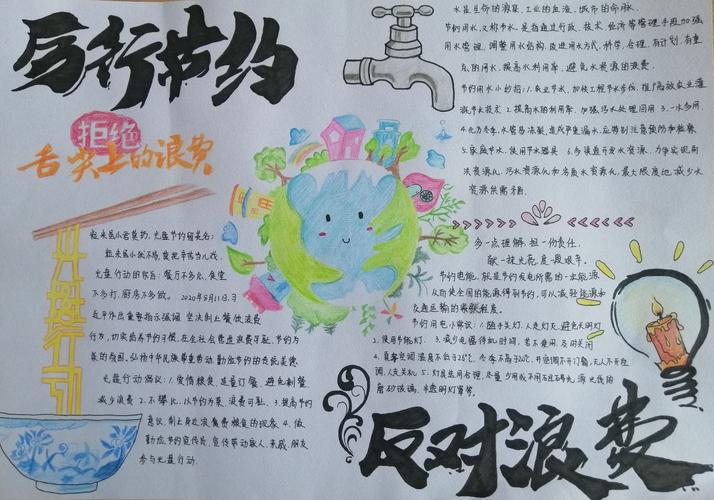 厉行节约
拒绝
舌尖上的浪费
光盘行动
粒米虽小君莫扔,光盘节约留美名;
粒米虽小犹不易,莫把辛苦当儿戏。
光盘行动的宗旨:餐厅不多点,食堂
不多打,厨房不多做。2020年8月11日,习
近平作出重要指示强调 坚决制止餐饮浪费
行为,切实培养节约习惯,在全社会营造浪费可耻、节约为
荣的氛围。弘扬中华民族尊重劳动、勤俭节约的传统美德
光盘行动倡议:1.爱惜粮食,适量订餐,避免剩餐,
减少浪费 2.不攀比,以节约为荣,浪费可耻。3.提高节约
意识,制止身边浪费粮食的现象 4.做
勤俭节约宣传员,宣传带动家人、亲戚、朋友
参与光盘行动。
水是生命的源泉、工业的血液、城市的命脉。
节约用水,又称节水,是指通过行政、技术、经济等管理手段加强
用水管理,调整用水结构,改进用水方式,科学、合理、有计划、有重
点的用水,提高水利用率,避免水资源的浪费。
节约用水小妙招:1.农业节水,加快工程节水步伐,推广高效农业灌
溉节水技术 2.提高水的利用率,加强污水处理回用 3.一水多用。
4.北方冬季,水管易冻裂,造成严重漏水,应特别注意预防和检查
5.家庭节水,使用节水器具 6.多渠道开发水资源,力争实现雨
洪资源化,污水资源化和苦咸水资源化,最大限度地减少水
资源供需矛盾。
多一点理解,担一份责任,
献一抹光亮,度一段艰辛。
节约电能,就是节约发电所需的一次能源,
从而使全国的能源得到节约,可以减轻能源和
交通运输的紧张程度。
节约用电小常识:1.随手关灯,人走灯灭,避免长明灯
2.使用节能灯 3.减少电器待机时间,若不使用,及时关闭
4.夏季空调温度不低于26℃,冬季不高于20℃,开空调不开门窗,无人不开空
调,人走关机 5.灯具应用合理,尽量少用或不用
磨砂玻璃,半透明灯罩等。
反对浪费